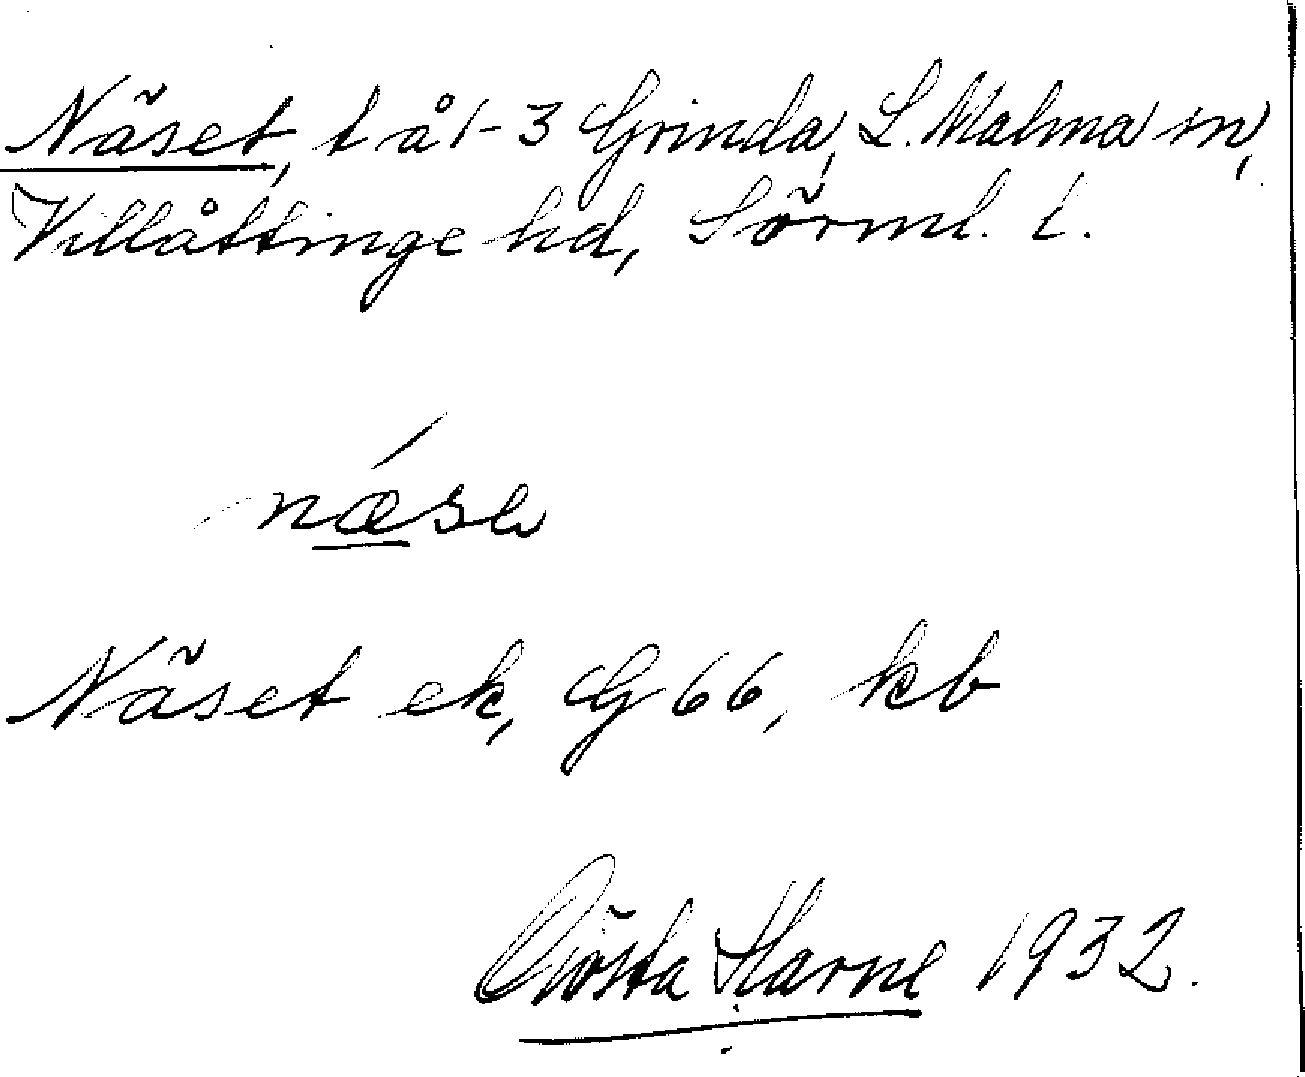 Näset, t å 1-3 Grinda, L. Malma sn,
Villåttinge hd, Sörml. l.
næse
Näset ek, G 66, kb
Gösta Harne 1932.